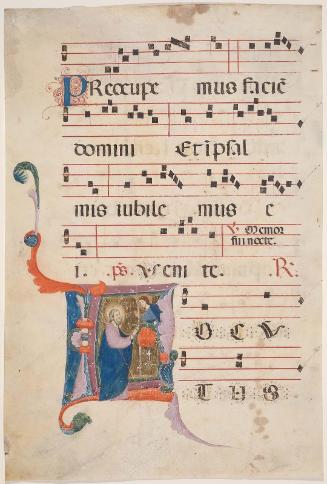 PReocupe mus faciē
domini Et ī psal
mis iubile mus e
℣. Memor
fui nocte.
i. p̄s. Veni te. R̄.
LOCU
TUS